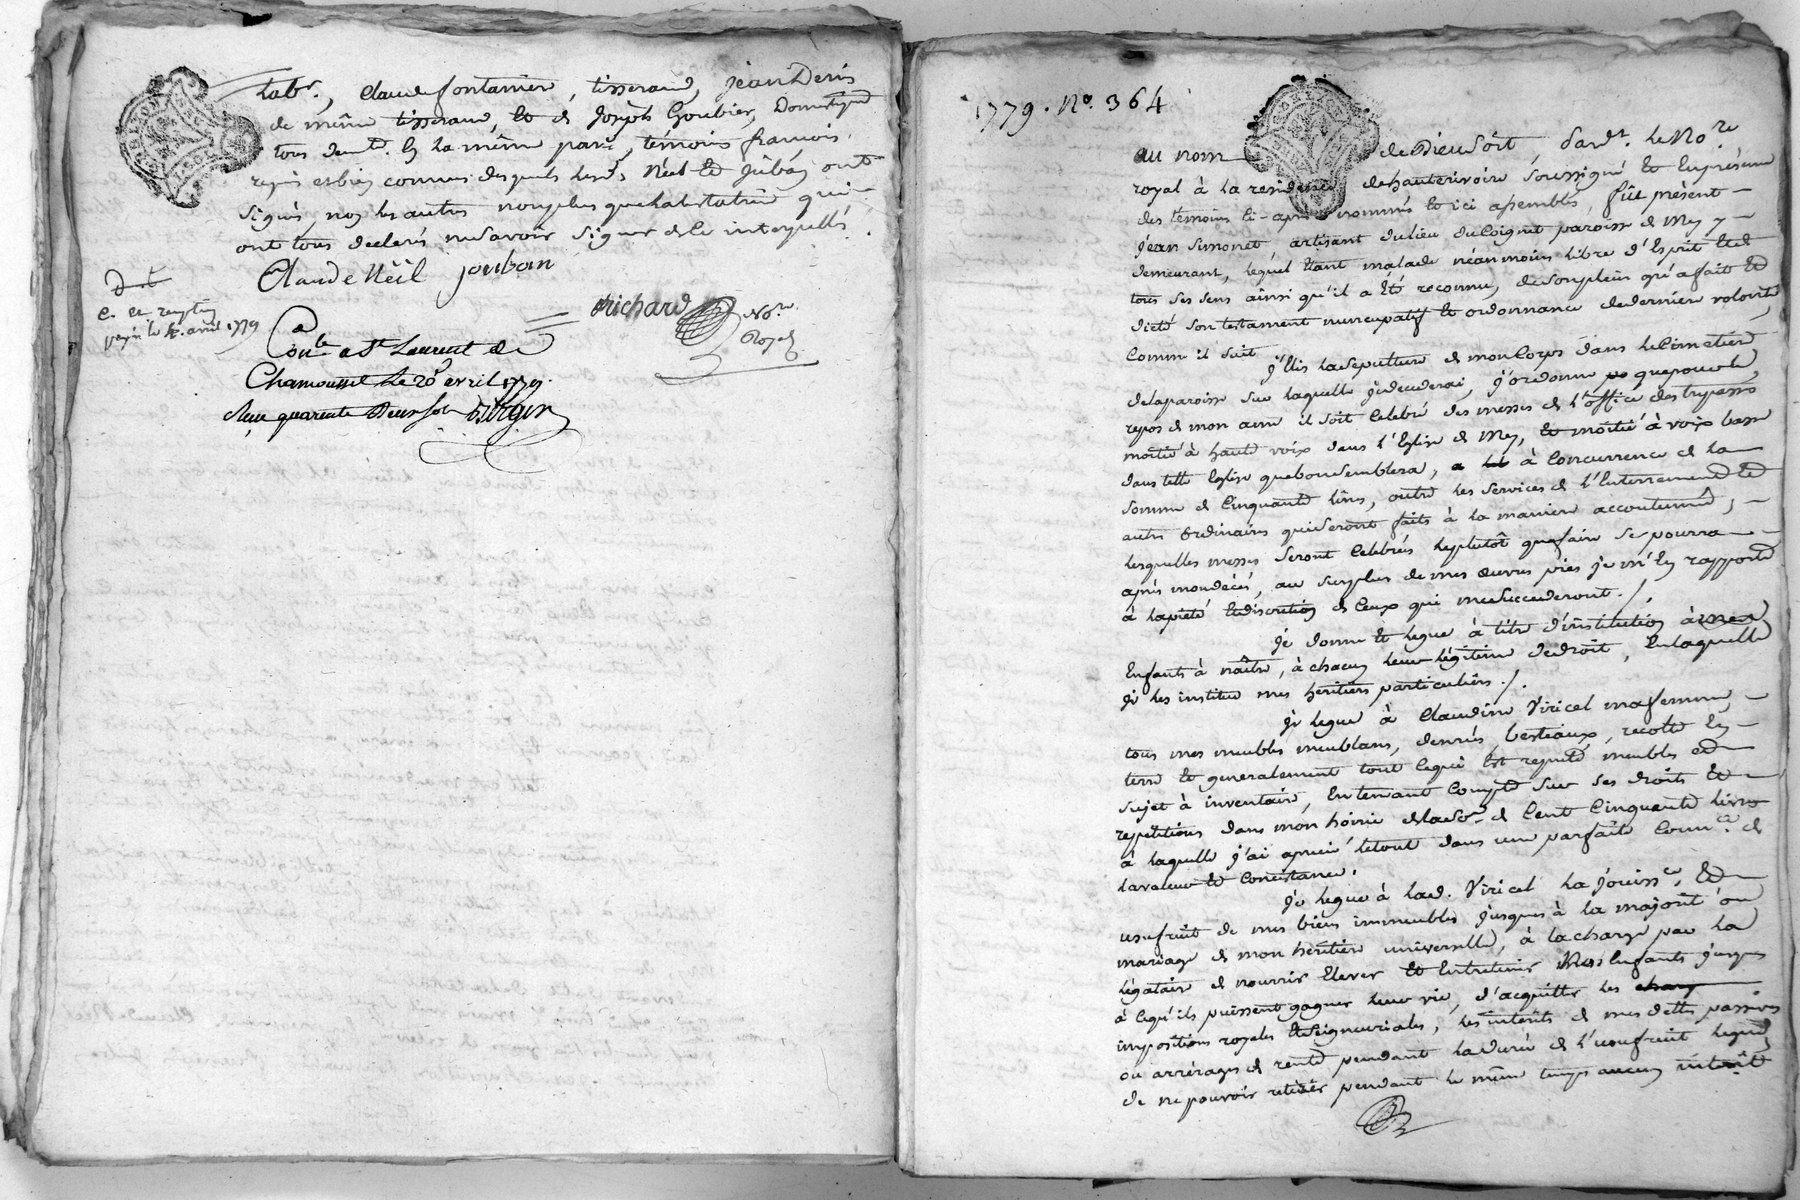 labr., Claude fontanier, tisserand, Jean Denis
de même tisserand, et de Joseph Goubier, Domestique
tous demt. en la même parse, témoins francois
requis et bien connus desquels lesds Néel et Juban ont
signés, non les autres non plus que la testatrice qui
ont tous declarés ne savoir signer de ce interpellés
Claude Néil jouban
Richard
Nore
Royal
D. t.
payé le 4. avril 1779
Conle a St Laurent de
Chamousset Le 20 avril 1779.
Reçu quarente Deux sols
1779. No. 364
au nom de Dieu soit, pardt. le Nore
royal à la residence de hauterivoire soussigné et en présence
des témoins ci-après nommés et ici assemblés, fût présent
Jean Simonet artisant du lieu du Coignet paroisse de Mey y
demeurant, lequel étant malade néanmoins libre d'Esprit et de
tous ses sens ainsi qu'il a été reconnu, de son plein gré a fait et
dicté son testament nuncupatif et ordonnance de derniere volonté,
Comme il suit
j'Elis la sepulture de mon Corps dans le Cimetiere
de la paroisse sur laquelle je decederai, j'ordonne que pour le
repos de mon ame il soit Celebré des messes de l'office des trepassés
moitié à haute voix dans l'Eglise de Mey, et moitié à voix basse
dans telle Eglise que bon semblera, à Concurrence de la
somme de Cinquante livres, outre les services de l'Enterrement et
autres ordinaires qui seront faits à la maniere accoutumée,
lesquelles messes seront Celebrées le plutôt que faire se pourra
après mon décès, au surplus de mes œuvres pies je m'En rapporte
à la piété et discretion de Ceux qui me succederont./.
Je donne et legue à titre d'institution à mes
Enfants à naître, à chacun leur légitime de droit, En laquelle
je les institue mes heritiers particuliers./.
Je legue à Claudine Viricel ma femme,
tous mes meubles meublans, denrées bestiaux, recolte En
terre et generalement tout Ce qui Est reputé meubles et
sujet à inventaire, En tenant Compte sur ses droits et
repetitions dans mon hoirie de la So. de Cent Cinquante livres
à laquelle j'ai aprecié le tout dans une parfaite Connce. de
la valeur et Consistance.
Je legue à lad. Viricel la jouissce. et
usufruit de mes biens immeubles jusques à la majorité ou
mariage de mon héritiere universelle, à la charge par la
légataire de nourrir Elever et Entretenir Mes Enfants jusques
à Ce qu'ils puissent gagner leur vie, d'acquitter les charg
impositions royales et seigneuriales, les intérêts de mes dettes passives
ou arrérages de rente pendant la durée de l'usufruit legué
de ne pouvoir retirer pendant le même temps aucun intérêt